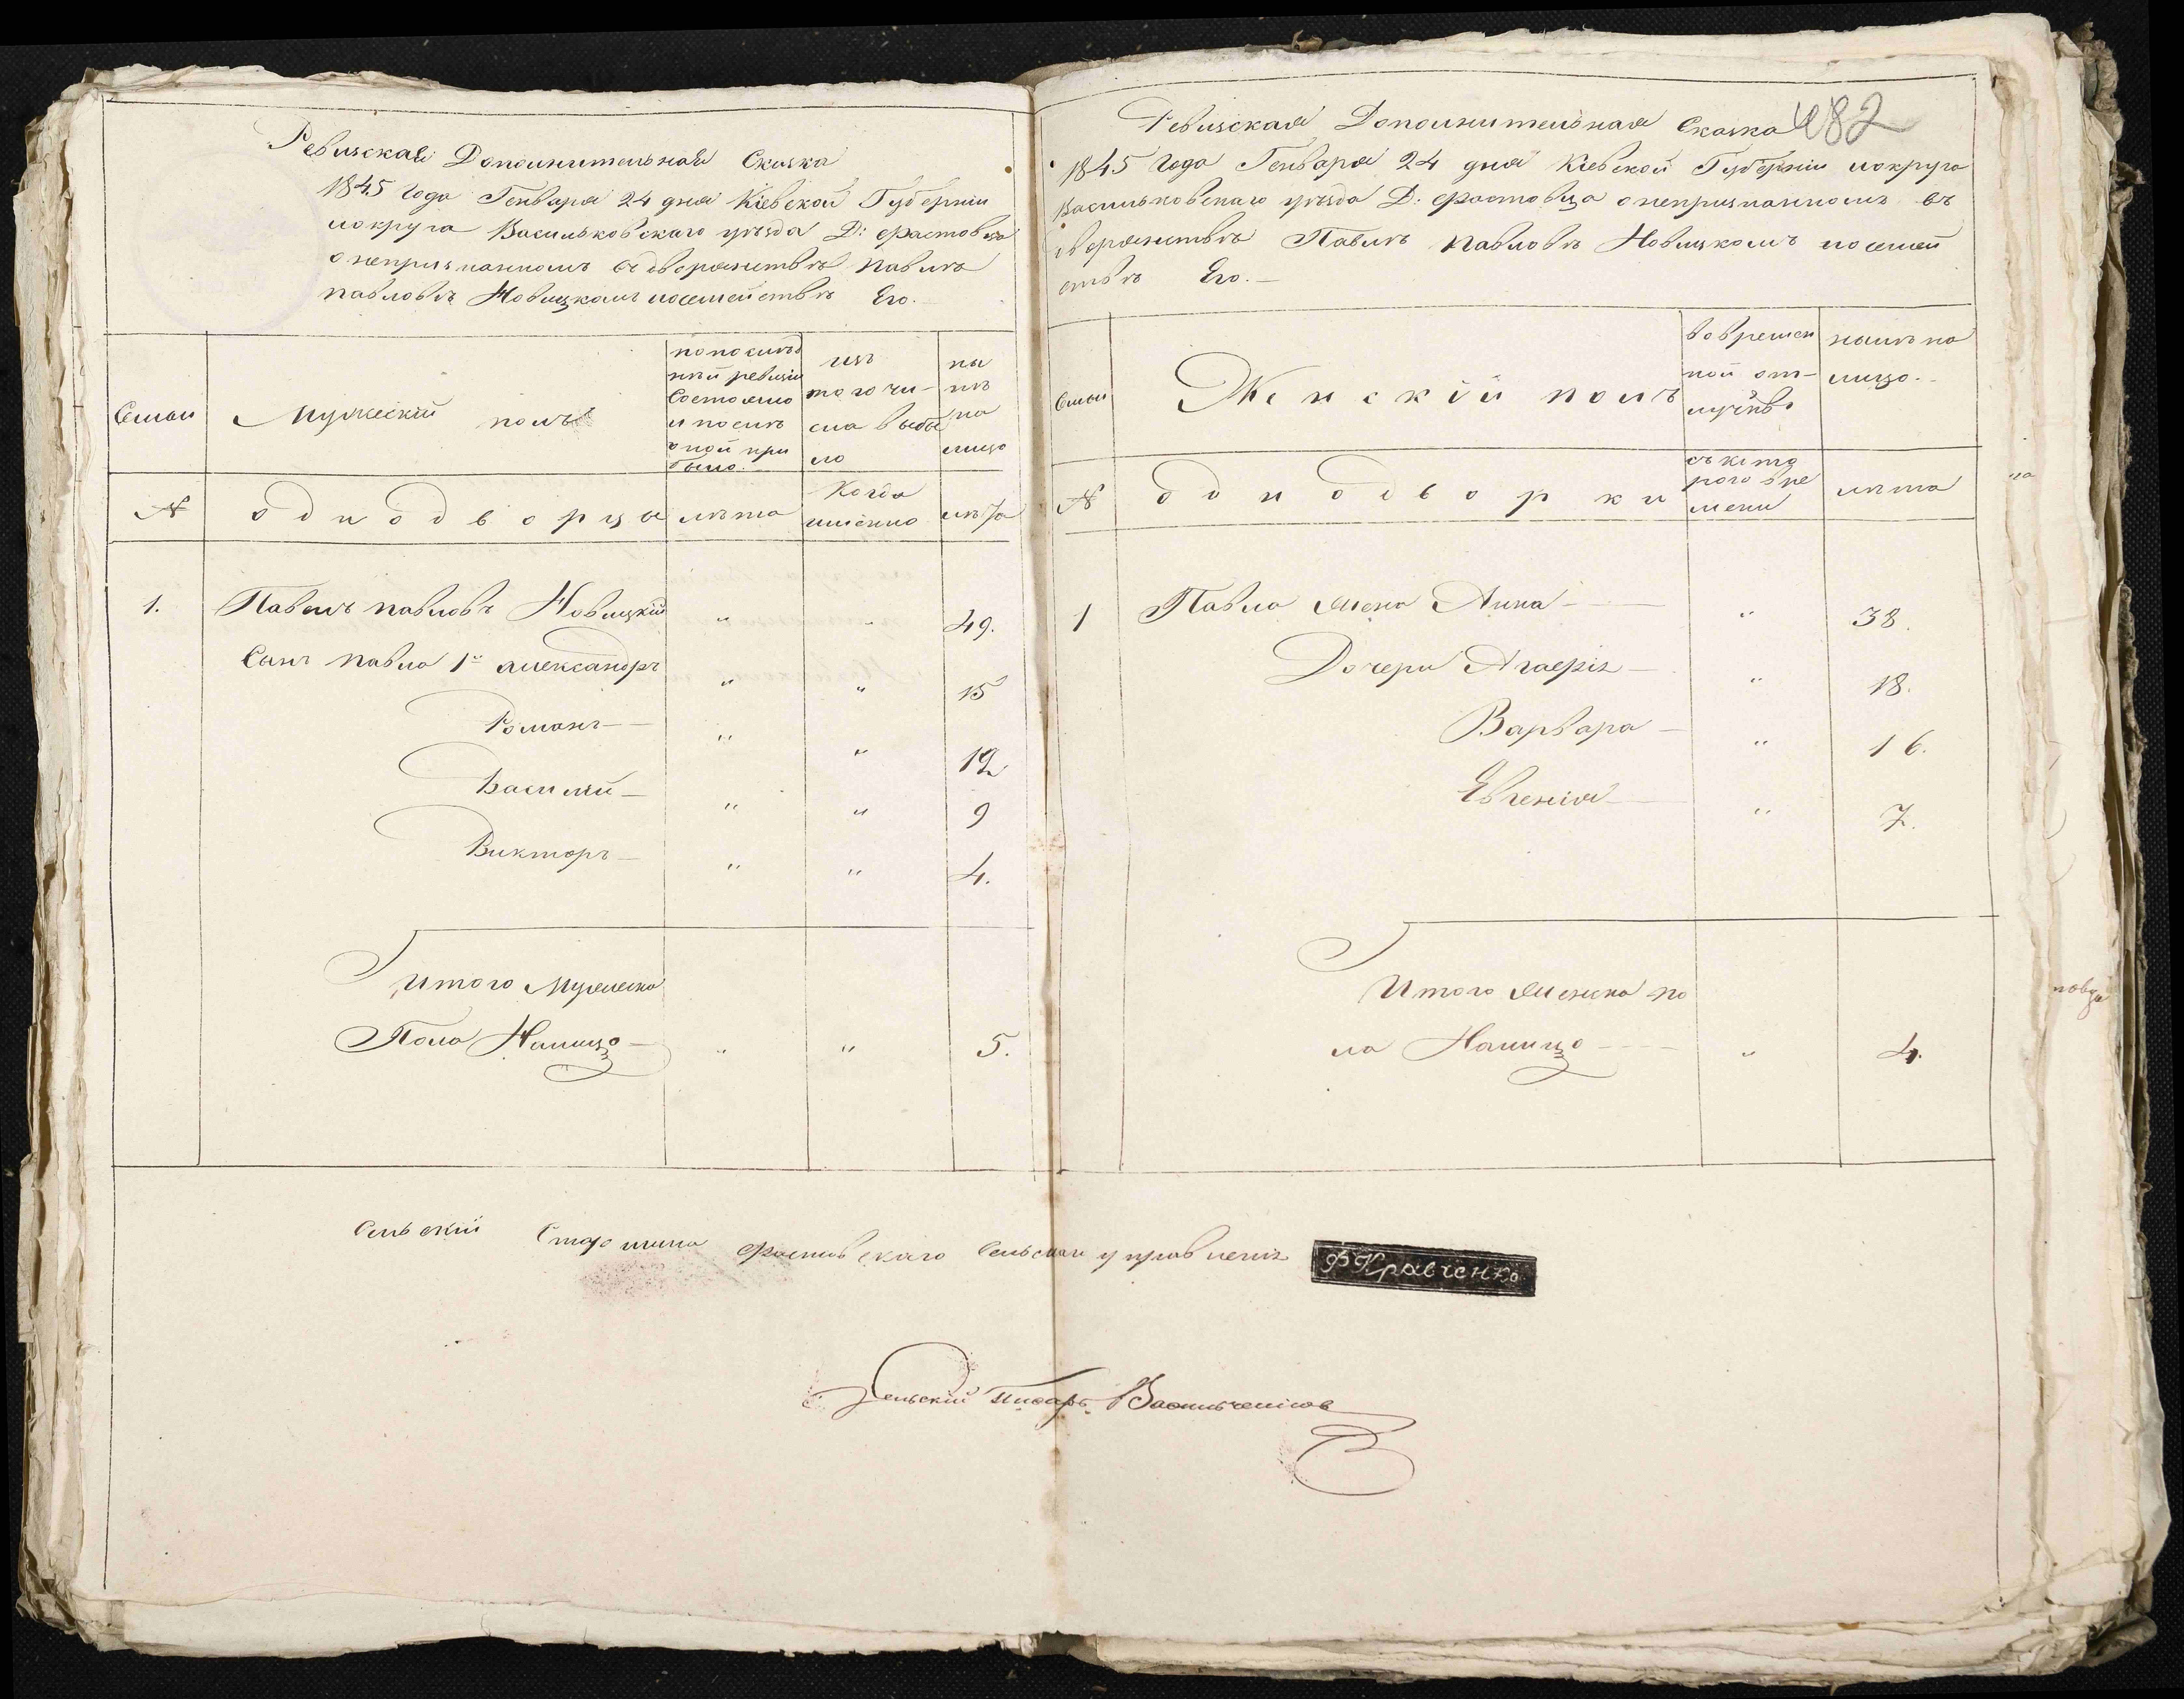 Ревизская Дополнительная Сказка
1845 Года Генваря 24 дня Кіевской Губерніи
и округа Васильковскаго уѣзда Д: Фастовца
о непризнанномъ въ дворянствѣ Павлѣ
Павловѣ Новицкомъ и семействѣ Его.
Семьи
Мужескій полъ
по послѣд
ней ревизіи
Состояло
и послѣ
оной при
было.
изъ
того чи-
сла выбы
ло
ны
нѣ
на
лицо
№
однодворцы
лѣта
Когда
имѣнно
лѣта
1. Павелъ Павловъ Новицкій " " 49.
Сынъ Павла 1й Александръ " " 15
Романъ " " 12
Василій " " 9
Викторъ " " 4.
Итого Мужеска
Пола Налицо " " 5.
482
Ревизская Дополнительная Сказка
1845 Года Генваря 24 дня Кіевской Губерніи и округа
Васильковскаго уѣзда Д: Фастовца о непризнанномъ въ
дворянствѣ Павлѣ Павловѣ Новицкомъ и семей
ствѣ Его.
Семьи
Женскій полъ
во времен
ной от-
лучкѣ
налѣ на
лицо.
№
однодворки
съ кото
рого вре
мени
лѣта
1 Павла жена Анна " 38.
Дочери Агафія " 18.
Варвара " 16.
Евгенія " 7.
Итого женска по
ла Налицо " 4.
Сельскій Старшина Фастовскаго Сельскаго управленія Ф Кравченко
Сельскій Писарь Васильченков